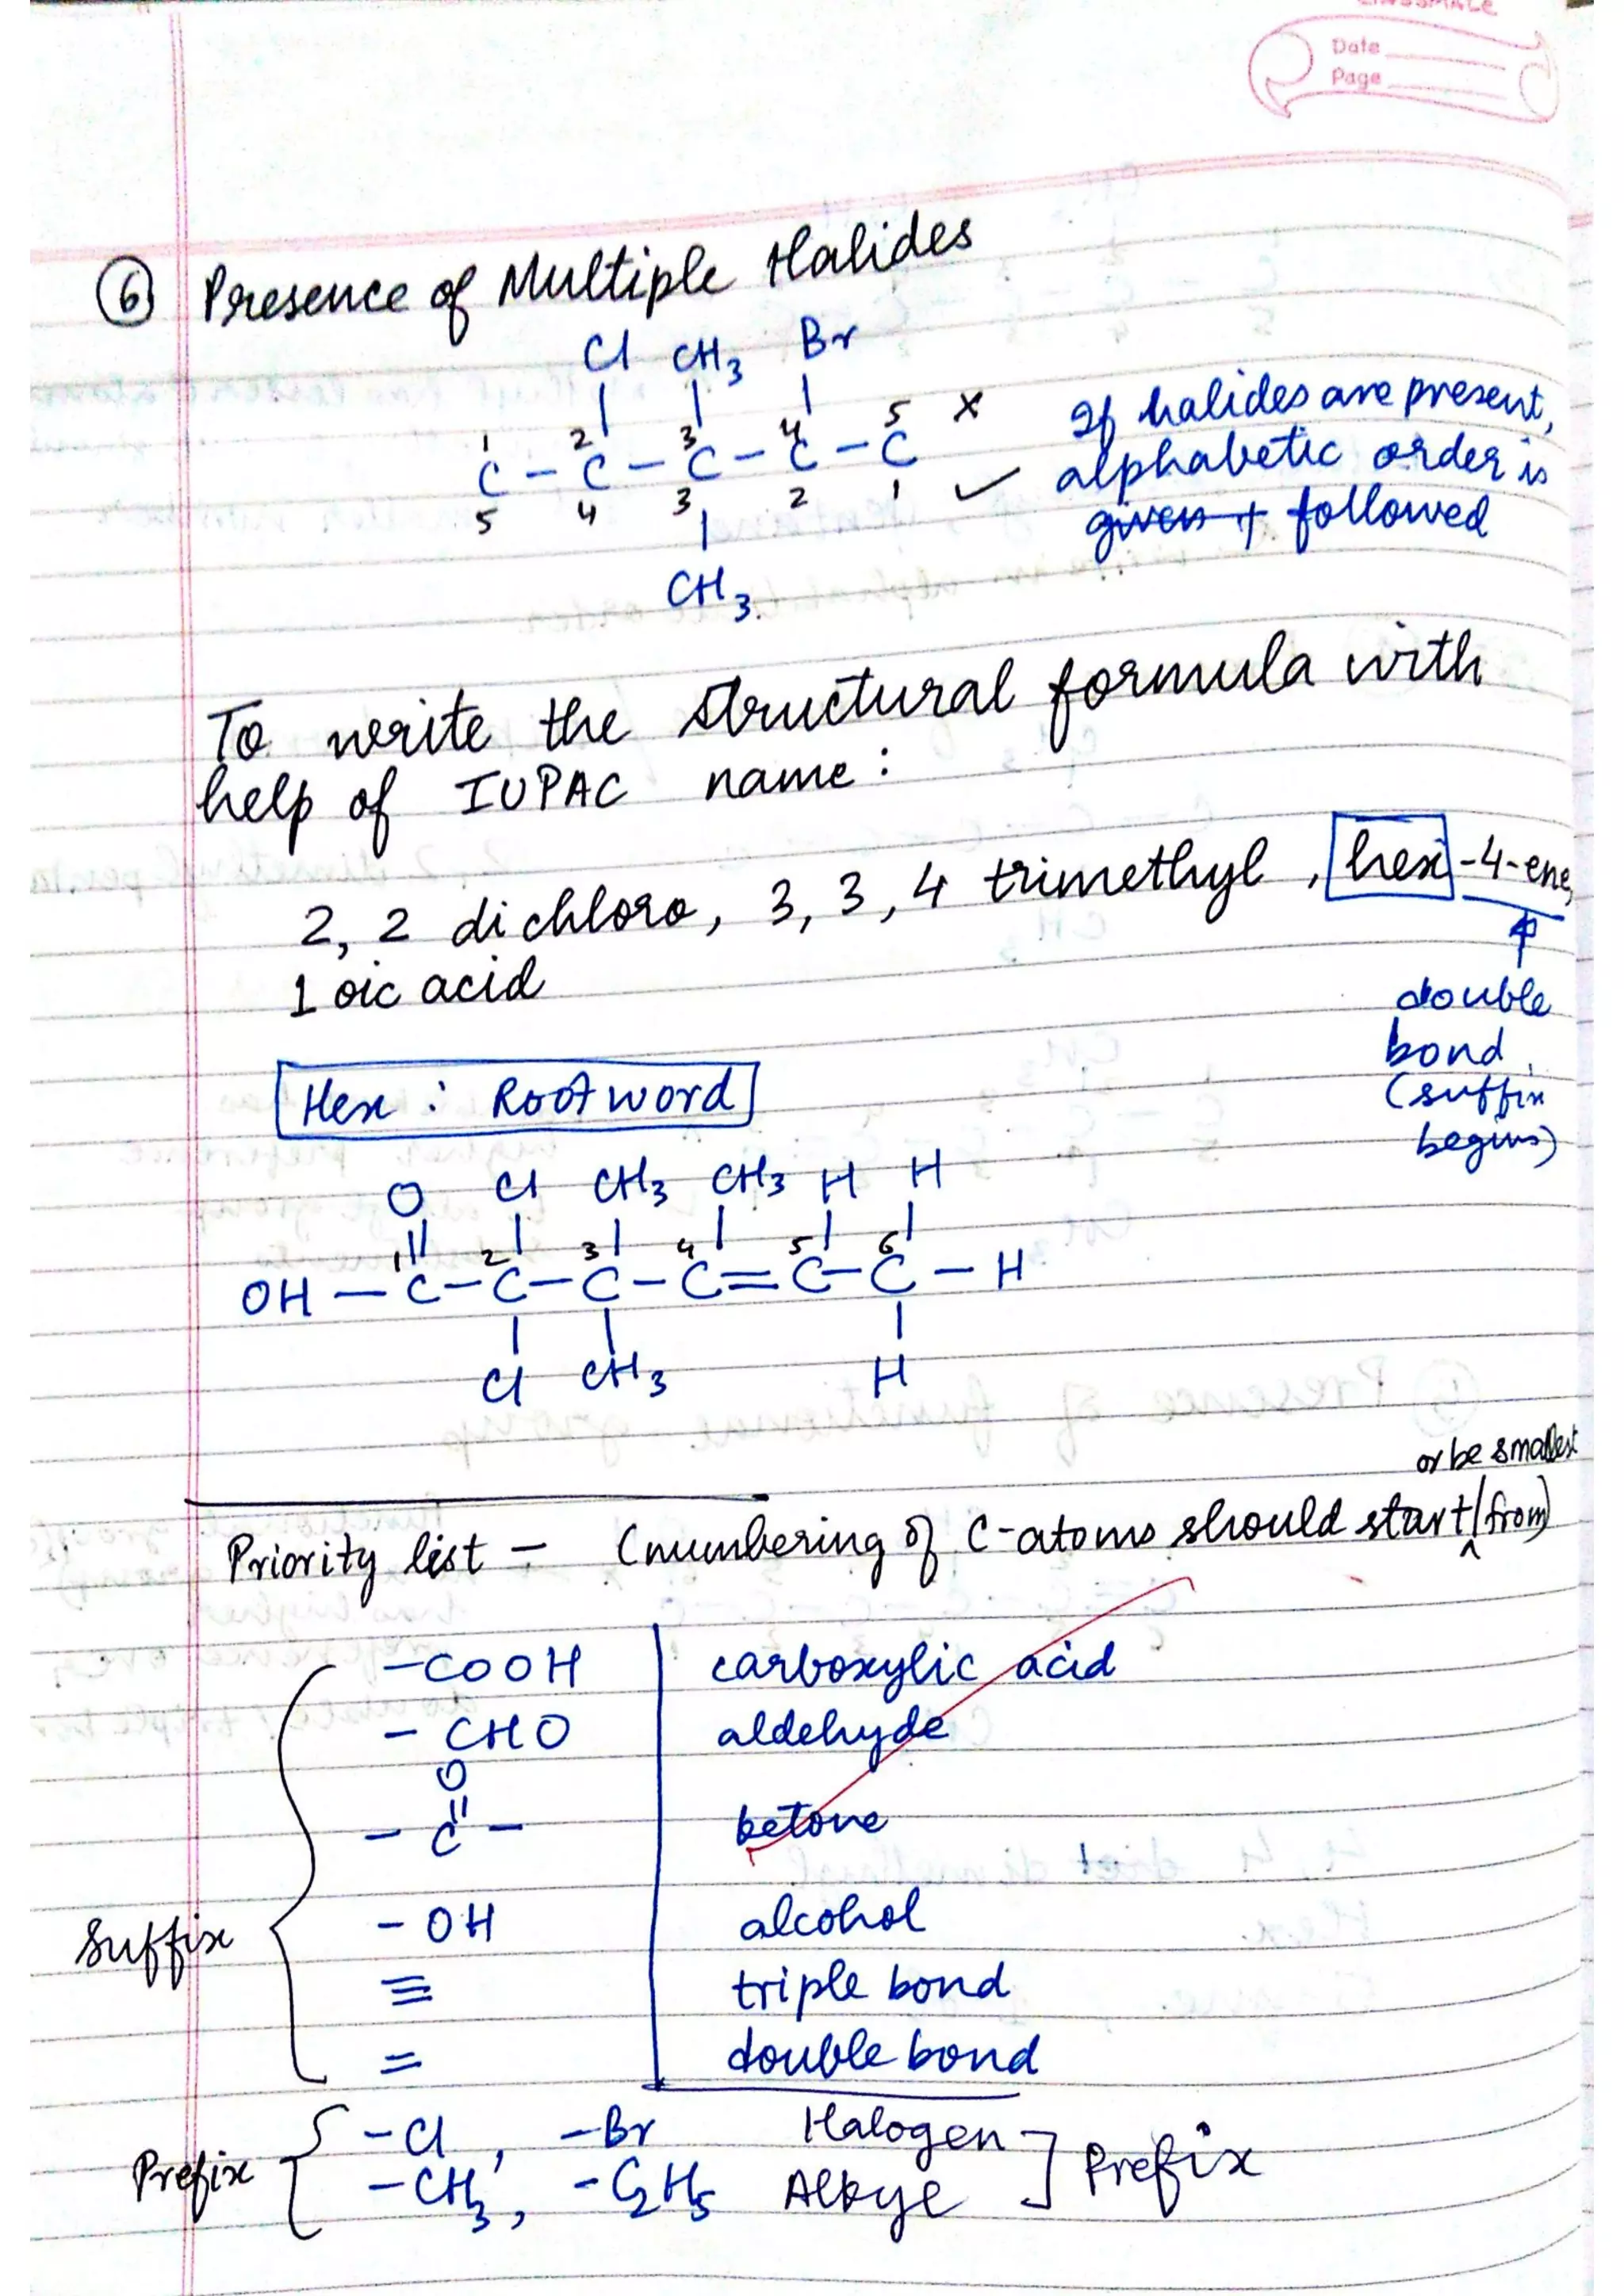 Date
Page
6 Presence of Multiple Halides
Cl CH3 Br
1 2 3 4 5 x
C - C - C - C - C
5 4 3 2 1 ✓
CH3
If halides are present,
alphabetic order is
given + followed
To write the structural formula with
help of IUPAC name :
2, 2 dichloro, 3, 3, 4 trimethyl, hex -4-ene,
1 oic acid
double
bond
(suffix
begins)
Hex : Root word
O Cl CH3 CH3 H H
1 2 3 4 5 6
OH - C - C - C - C = C - C - H
Cl CH3 H
or be smallest
Priority list - (numbering of C-atoms should start/from)
-COOH carboxylic acid
- CHO aldehyde
O
- C - ketone
Suffix - OH alcohol
≡ triple bond
= double bond
Prefix -Cl, -Br Halogen Prefix
-CH3, -C2H5 Alkyl